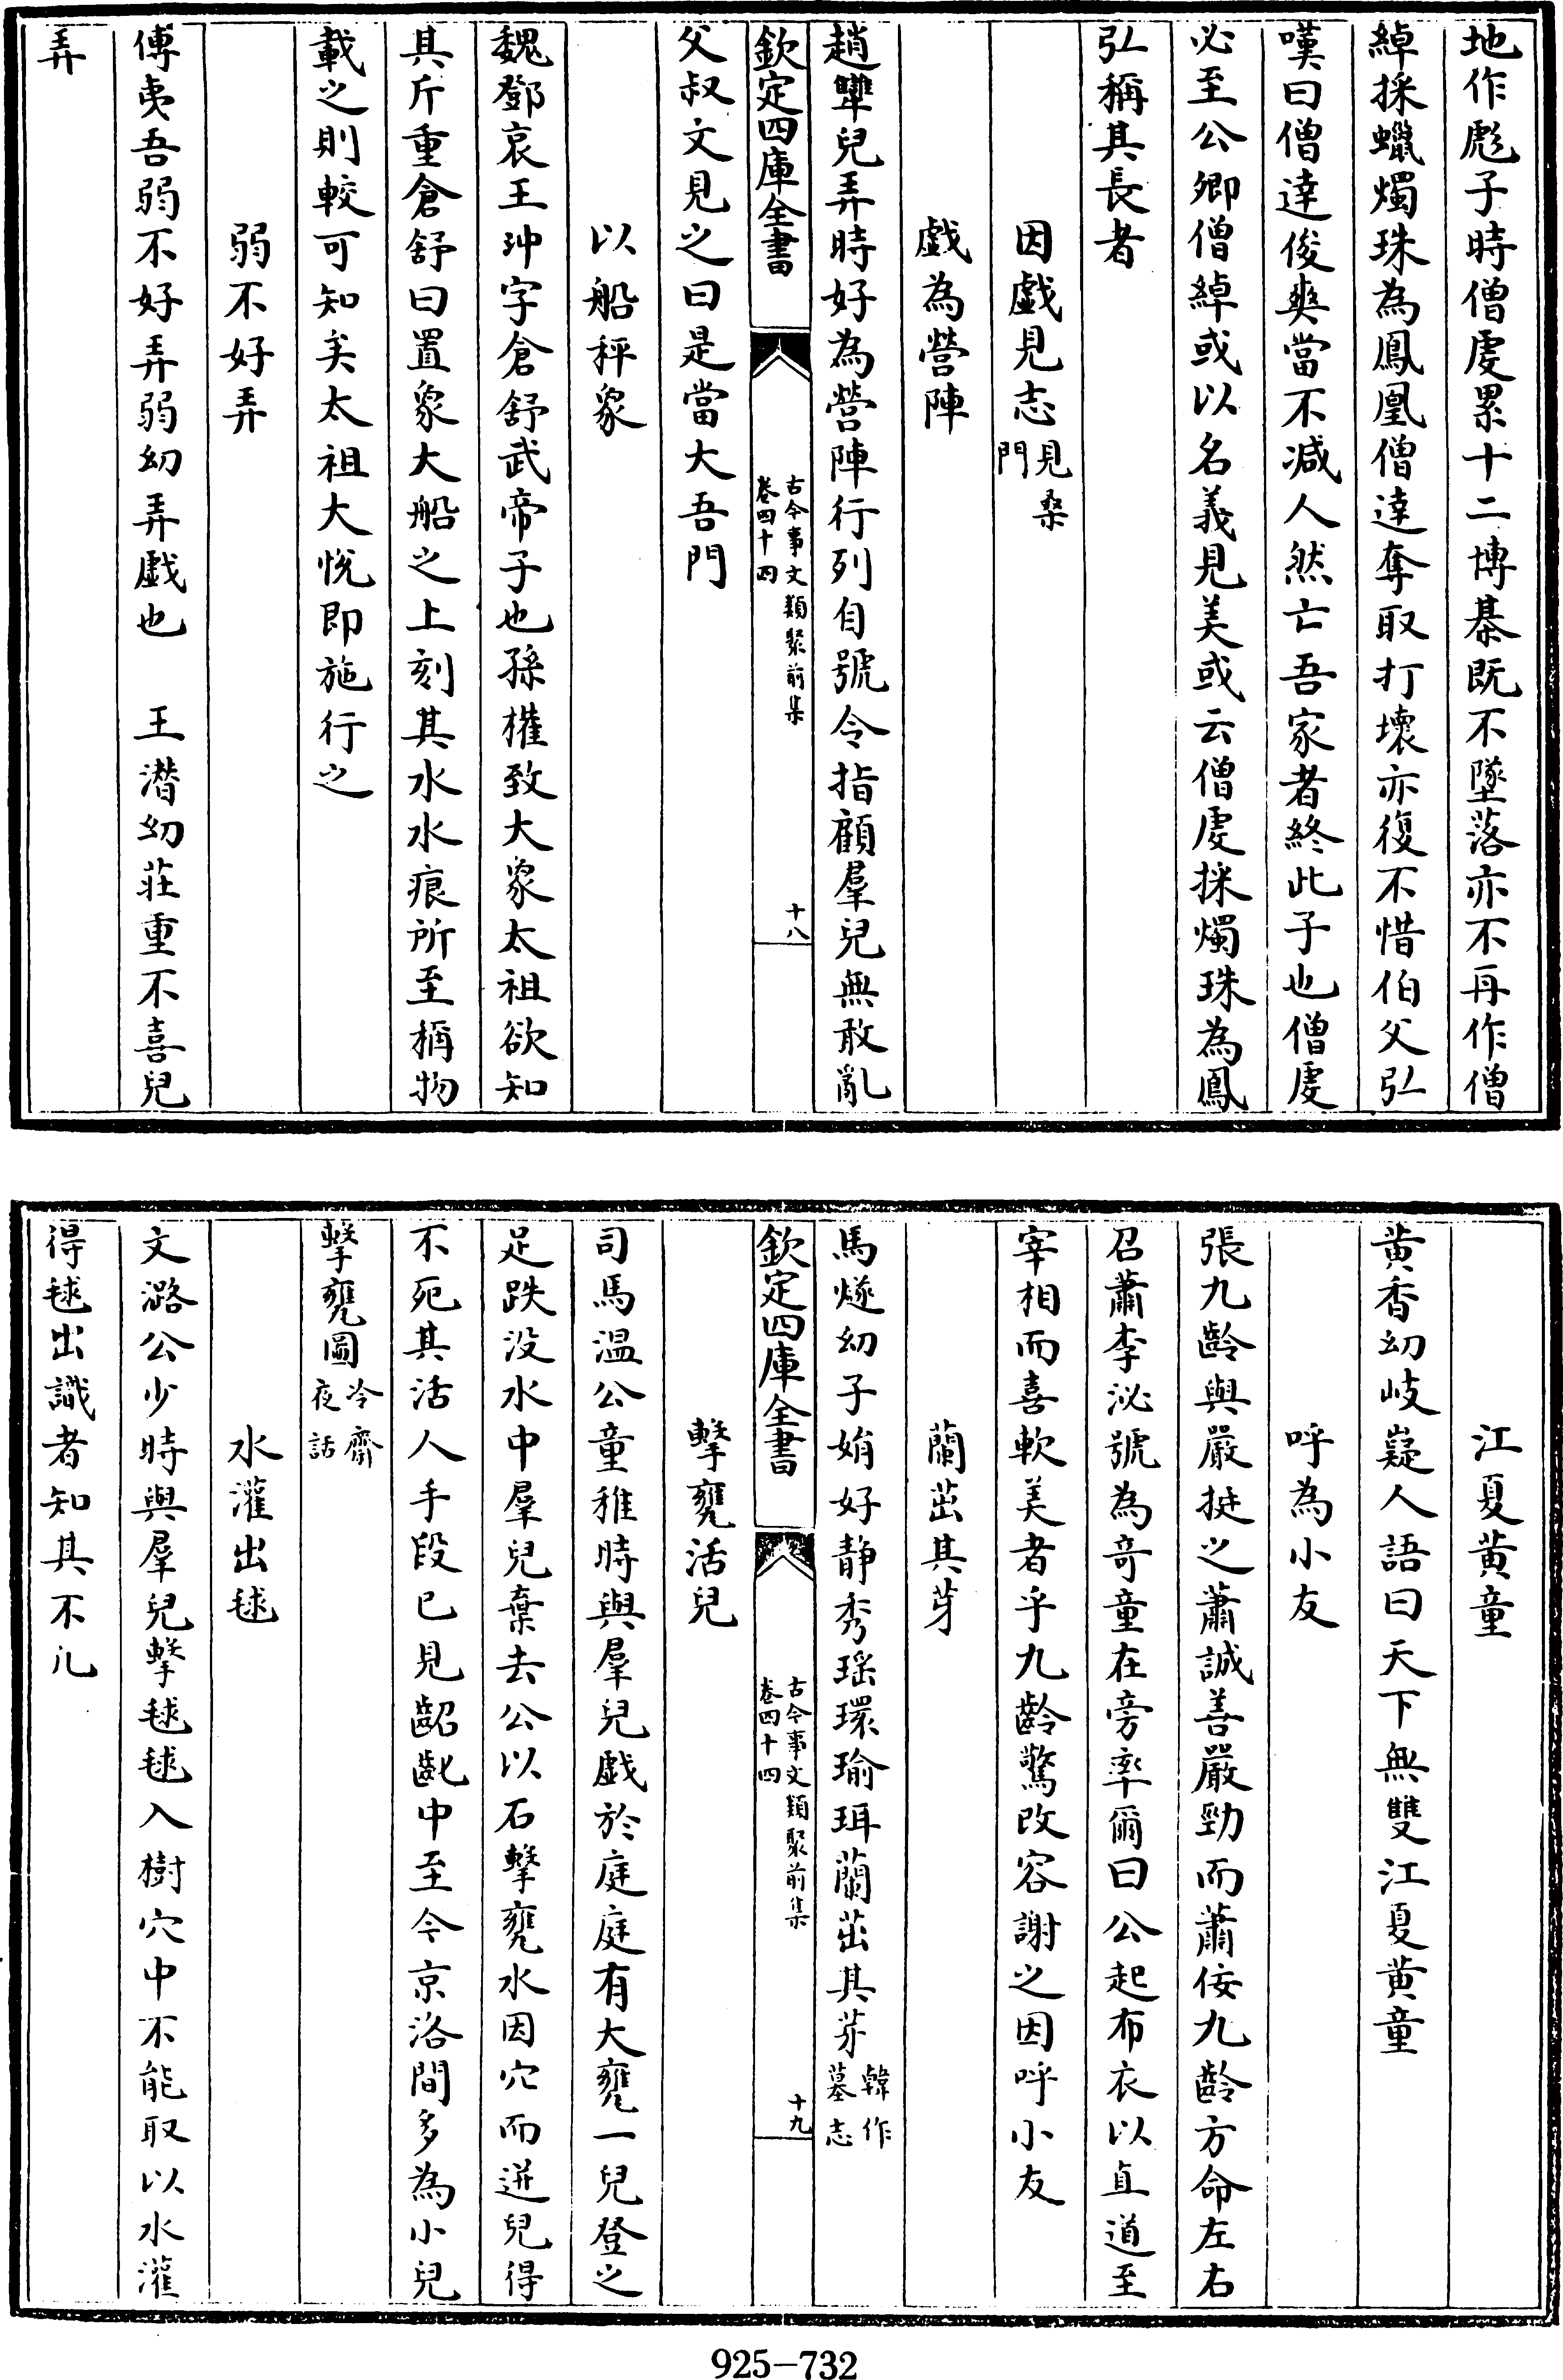 地作彪子時僧虔累十二博棊既不墜落亦不再作僧
綽採蠟燭珠為鳳凰僧達奪取打壞亦復不惜伯父弘
嘆曰僧達俊爽當不减人然亡吾家者終此子也僧虔
必至公卿僧綽或以名義見美或云僧虔採燭珠為鳳
弘稱其長者
因戯見志見桑門
戯為營陣
趙犨兒弄時好為營陣行列自號令指顧羣兒無敢亂
欽定四庫全書
古今事文類聚前集
卷四十四
十八
父叔文見之曰是當大吾門
以船秤象
魏鄧哀王冲字倉舒武帝子也孫權致大象太祖欲知
其斤重倉舒曰置象大船之上刻其水水痕所至稱物
載之則較可知矣太祖大悅即施行之
弱不好弄
傅夷吾弱不好弄弱幼弄戯也　王潜幼莊重不喜兒
弄
江夏黄童
黄香幼岐嶷人語曰天下無雙江夏黄童
呼為小友
張九齡與嚴挺之蕭誠善嚴勁而蕭佞九齡方命左右
召蕭李泌號為竒童在旁率爾曰公起布衣以直道至
宰相而喜軟美者乎九齡驚改容謝之因呼小友
蘭茁其芽
馬燧幼子娋好静秀瑶環瑜珥蘭茁其芽韓作墓志
欽定四庫全書
古今事文類聚前集
卷四十四
十九
擊甕活兒
司馬温公童稚時與羣兒戯於庭庭有大甕一兒登之
足跌没水中羣兒棄去公以石擊甕水因穴而迸兒得
不死其活人手段已見齠齔中至今京洛間多為小兒
擊甕圖冷齋夜話
水灌出毬
文潞公少時與羣兒擊毬毬入樹穴中不能取以水灌
得毬出識者知其不凡
925-732